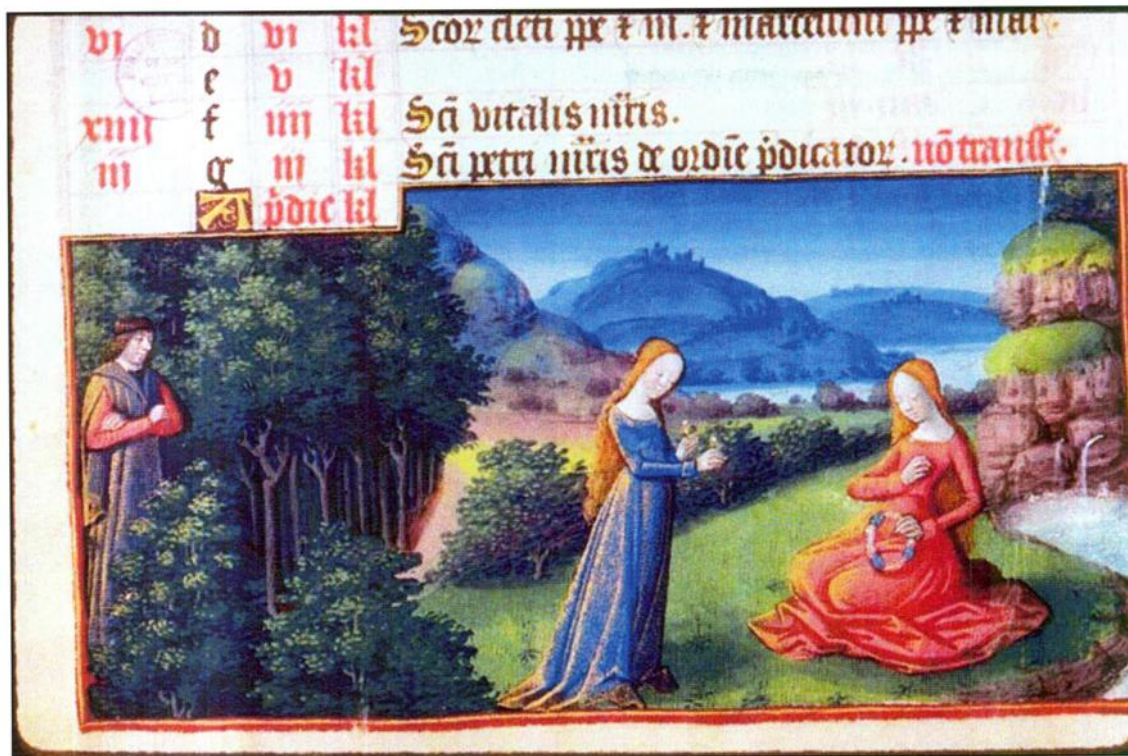 vi d vi kl Scor cleti ppe & m. & marcellini ppe & mar.
e v kl
xiiij f iiij kl Sci vitalis mris.
iij g iij kl Sci petri mris de ordie pdicator. nō transf.
A pdie kl